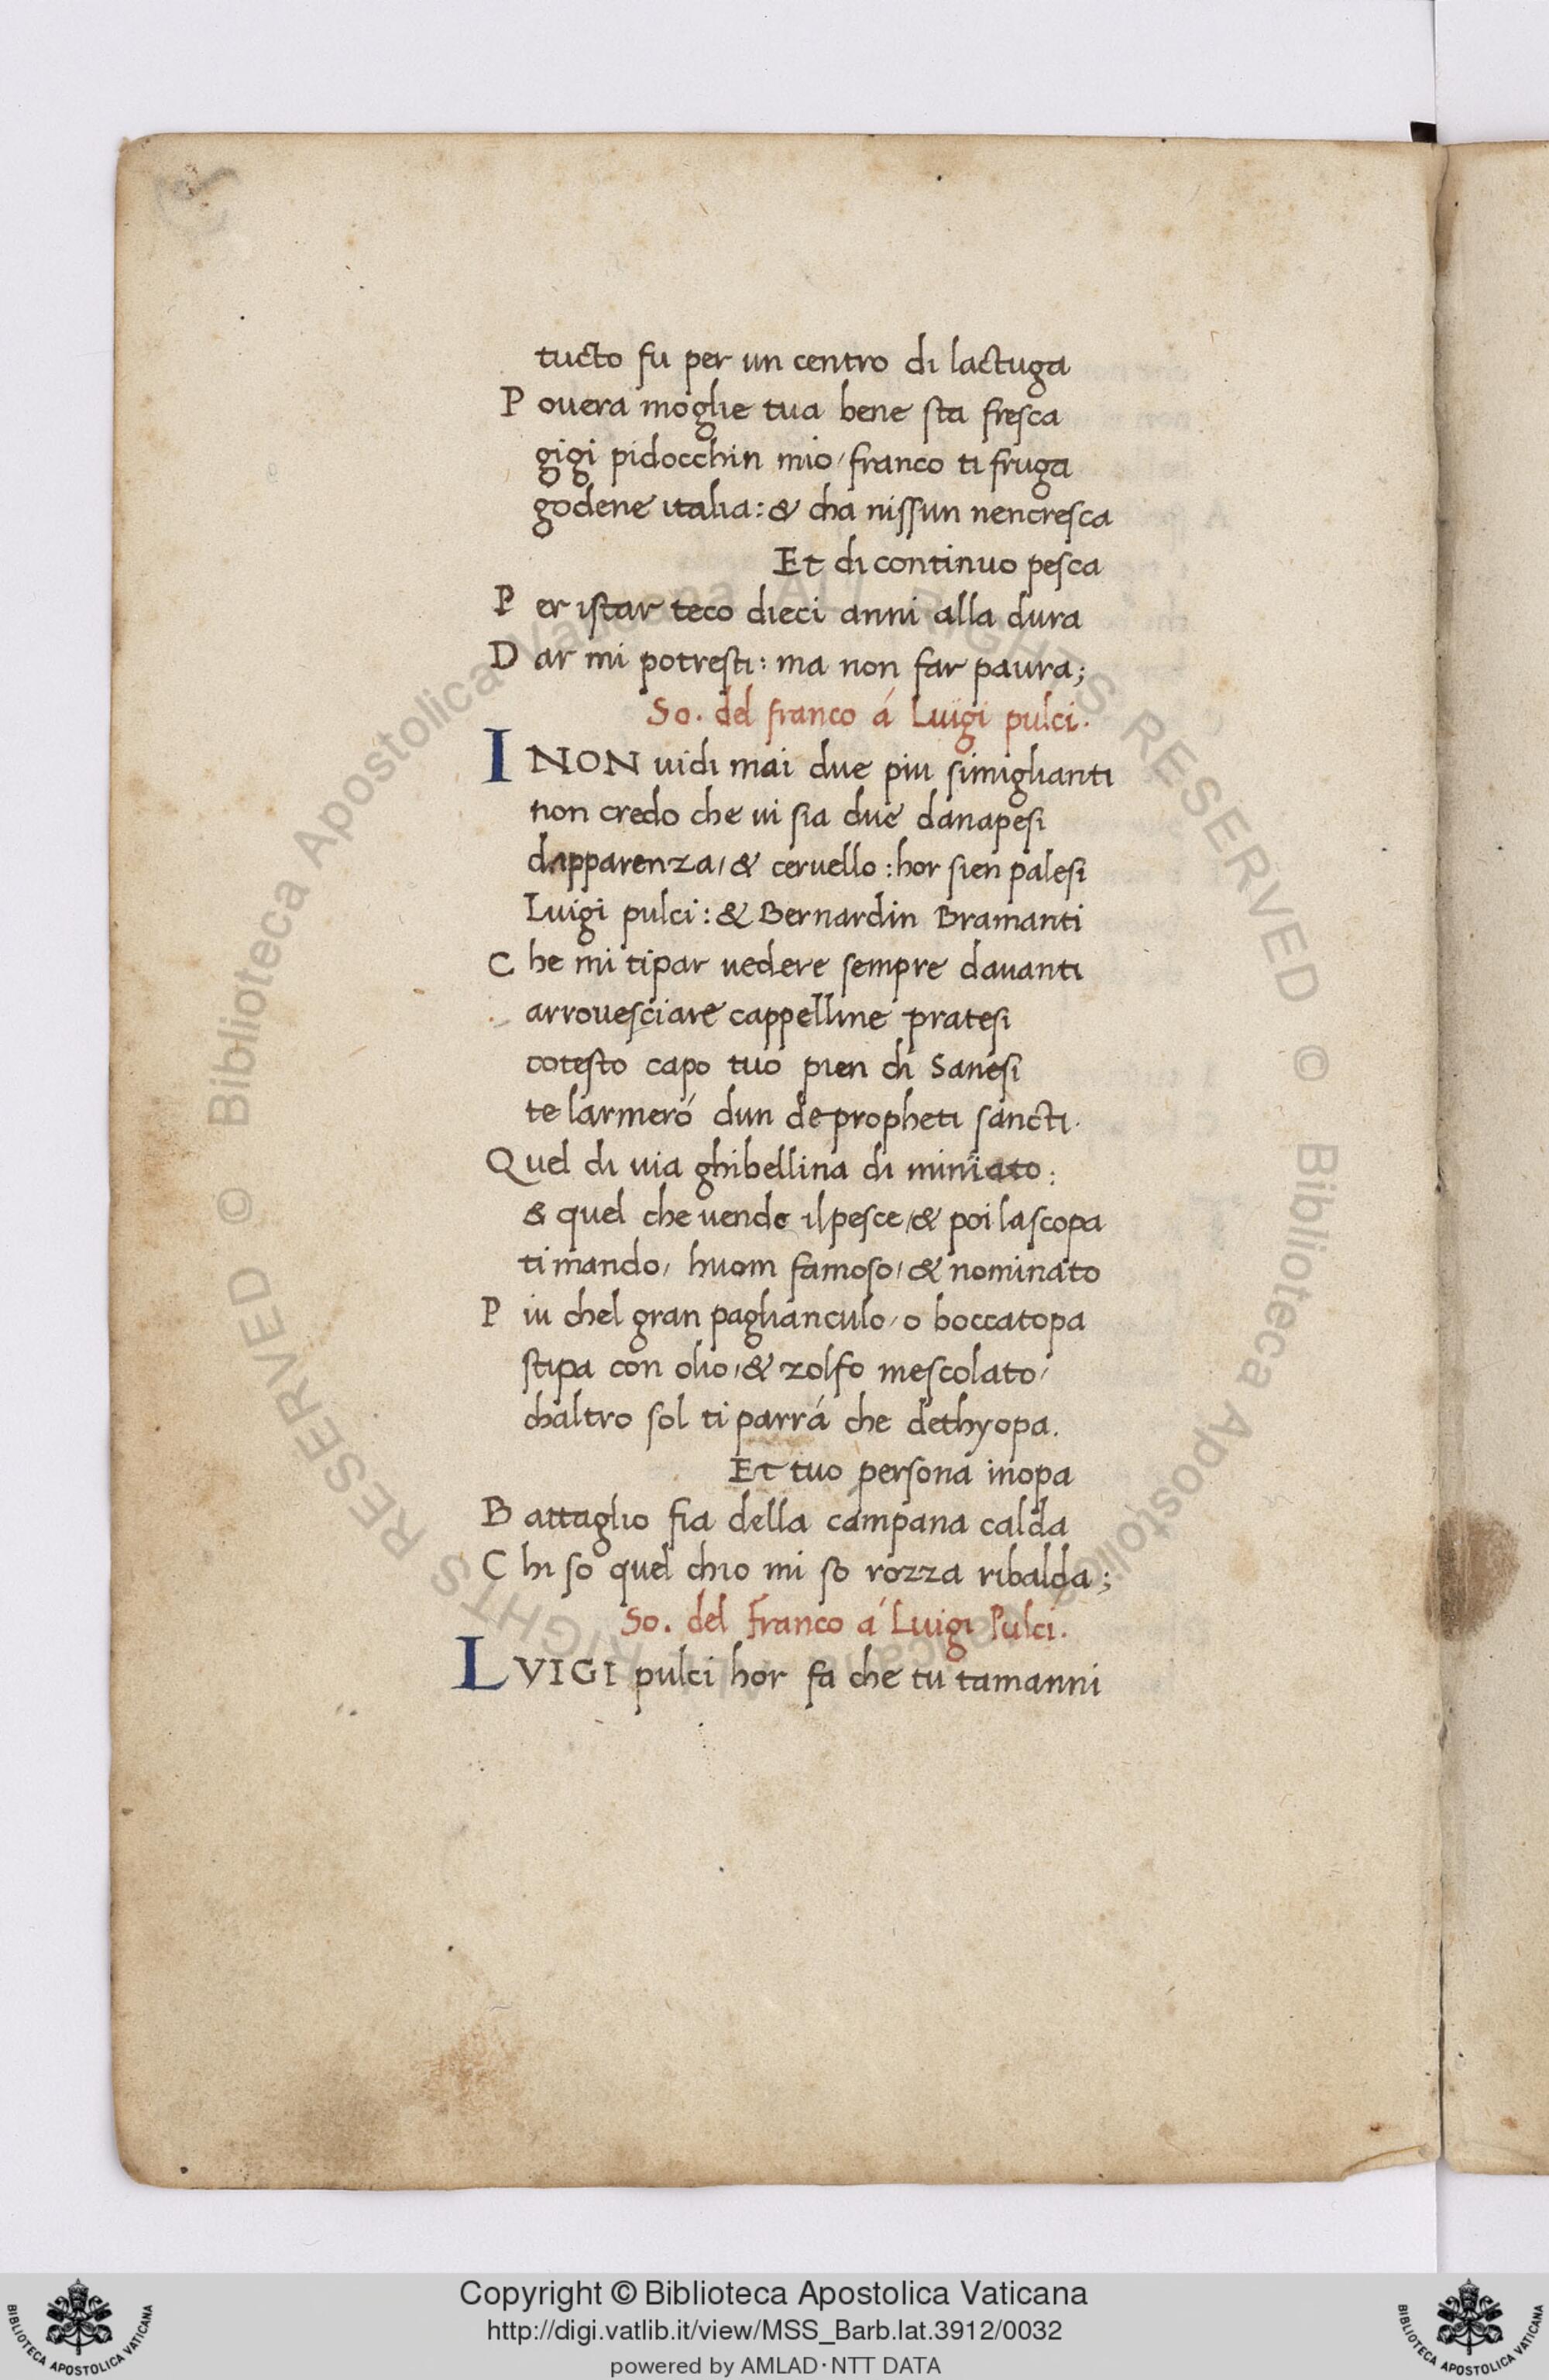 tucto fu per un centro di lactuga
P ouera moglie tua bene sta fresca
gigi pidocchin mio/ franco ti fruga
godene italia: & cha nissun nencresca
Et di continuo pesca
P er istar teco dieci anni alla dura
D ar mi potresti: ma non far paura;
So. del franco á Luigi pulci.
I NON uidi mai due piu simiglianti
non credo che ui sia due danapesi
dapparenza/ & ceruello: hor sien palesi
Luigi pulci: & Bernardin Bramanti
C he mi ti par uedere sempre dauanti
arrouesciare cappelline pratesi
cotesto capo tuo pien di Sanesi
te larmeró dun de propheti sancti.
Q uel di uia ghibellina di miniato:
& quel che uende il pesce/ & poi la scopa
ti mando/ huom famoso/ & nominato
P iu chel gran paglianculo/ o boccatopa
stipa con olio/ & zolfo mescolato/
chaltro sol ti parrá che dethyopa.
Et tuo persona inopa
B attaglio fia della campana calda
C hi so quel chio mi so rozza ribalda;
So. del franco á Luigi Pulci.
L VIGI pulci hor fa che tu tamanni
© Biblioteca Apostolica Vaticana ALL RIGHTS RESERVED © Biblioteca Apostolica Vaticana ALL RIGHTS RESERVED
Copyright © Biblioteca Apostolica Vaticana
http://digi.vatlib.it/view/MSS_Barb.lat.3912/0032
powered by AMLAD·NTT DATA
BIBLIOTECA APOSTOLICA VATICANA
BIBLIOTECA APOSTOLICA VATICANA